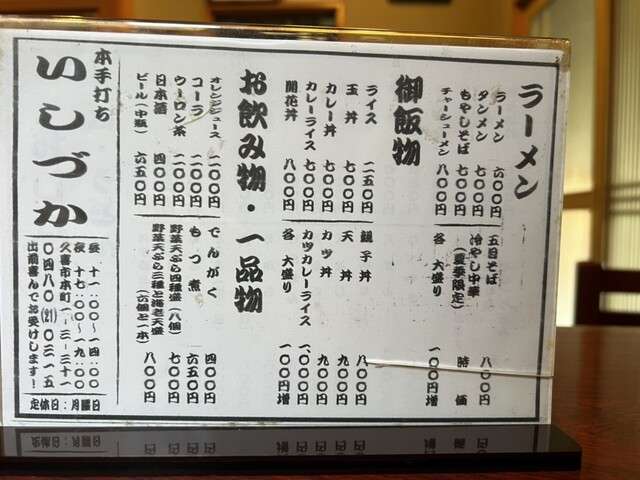 ラーメン
ラーメン 六〇〇円
タンメン 七〇〇円
もやしそば 七〇〇円
チャーシューメン 八〇〇円
五目そば 八〇〇円
冷やし中華 時価
(夏季限定)
各 大盛り 一〇〇円増
御飯物
ライス
玉丼 七〇〇円
カレー丼 七〇〇円
カレーライス 七〇〇円
開花丼 八〇〇円
親子丼 八〇〇円
天丼 九〇〇円
カツ丼 九〇〇円
カツカレーライス 一〇〇〇円
各 大盛り 一〇〇円増
お飲み物・一品物
オレンジジュース 二〇〇円
コーラ 二〇〇円
ウーロン茶 二〇〇円
日本酒 四〇〇円
ビール(中瓶) 六五〇円
でんがく 四〇〇円
もつ煮 六五〇円
野菜天ぷら四種盛(八個) 七〇〇円
野菜天ぷら三種と海老天盛(六個と一本) 八〇〇円
本手打ち
いしづか
昼 十一:〇〇〜一四:〇〇
夜 十七:〇〇〜一九:〇〇
久喜市本町一-三-三十一
〇四八〇(21)〇三一五
出前喜んでお受けします!
定休日:月曜日